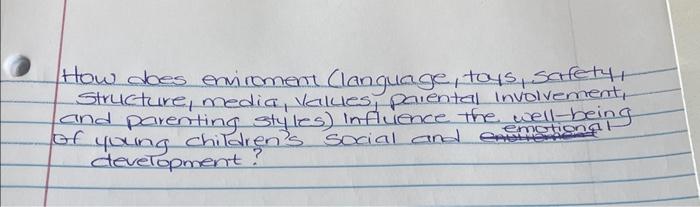 How does enviroment (language, toys, safety,
structure, media, values, parental involvement,
and parenting styles) influence the well-being
of young children's social and emotional
development?